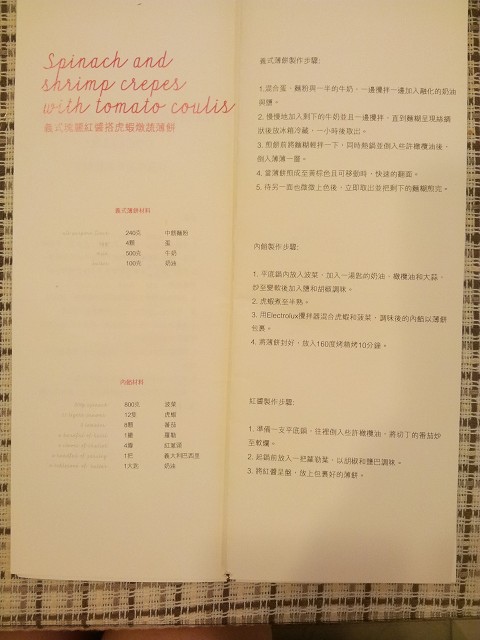 Spinach and
shrimp crepes
with tomato coulis
義式瑰麗紅醬搭虎蝦燉蔬薄餅
義式薄餅材料
240克 中筋麵粉
4顆 蛋
500克 牛奶
100克 奶油
內餡材料
800克 菠菜
12隻 虎蝦
8顆 蕃茄
1罐 羅勒
4瓣 紅蔥頭
1把 義大利巴西里
1大匙 奶油
義式薄餅製作步驟:
1.混合蛋、麵粉與一半的牛奶，一邊攪拌一邊加入融化的奶油
與鹽。
2. 慢慢地加入剩下的牛奶並且一邊攪拌，直到麵糊呈現絲綢
狀後放冰箱冷藏，一小時後取出。
3. 煎餅前將麵糊輕拌一下，同時熱鍋並倒入些許橄欖油後，
倒入薄薄一層。
4. 當薄餅煎成至黃棕色且可移動時，快速的翻面。
5. 待另一面也微微上色後，立即取出並把剩下的麵糊煎完。
內餡製作步驟:
1. 平底鍋內放入菠菜，加入一湯匙的奶油、橄欖油和大蒜，
炒至變軟後加入鹽和胡椒調味。
2. 虎蝦煮至半熟。
3. 用Electrolux攪拌器混合虎蝦和菠菜，調味後的內餡以薄餅
包裹。
4. 將薄餅封好，放入160度烤箱烤10分鐘。
紅醬製作步驟:
1. 準備一支平底鍋，往裡倒入些許橄欖油，將切丁的番茄炒
至軟爛。
2. 起鍋前放入一把羅勒葉，以胡椒和鹽巴調味。
3. 將紅醬呈盤，放上包裹好的薄餅。